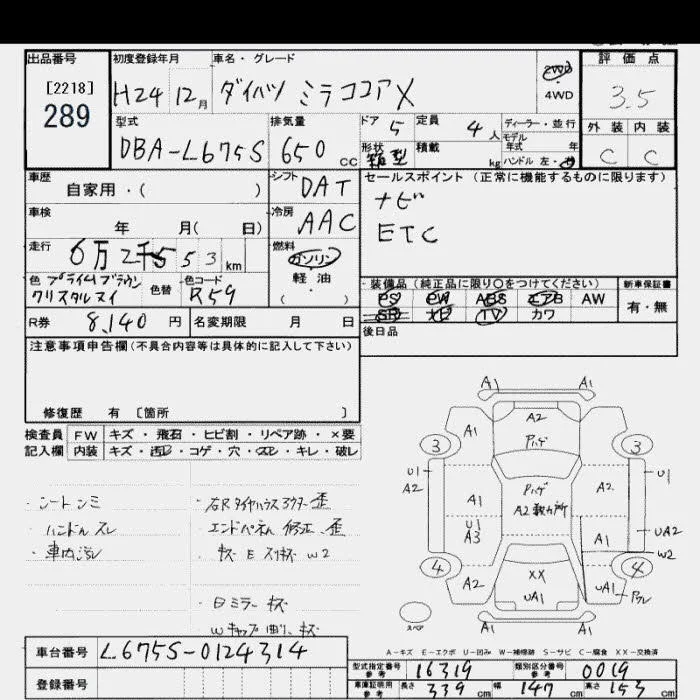 出品番号 初度登録年月 車名・グレード 評価点
[2218] H24 12月 ダイハツ ミラココアX 2WD 3.5
289 4WD
型式 排気量 ドア 5 定員 4人 ディーラー・並行 外装 内装
DBA-L675S 650cc 形状 箱型 積載 kg モデル年式 年 C C
ハンドル 左・右
車歴 自家用・( ) シフト DAT セールスポイント(正常に機能するものに限ります)
車検 年 月( 日) 冷房 AAC ナビ
走行 6万2千553km 燃料 ガソリン ETC
軽油
色 色替 色コード R59 ・( ) 装備品(純正品に限り〇をつけてください) 新車保証書
クリスタルマイ PS PW ABS エアB AW 有・無
R券 8,140円 名変期限 月 日 SR ナビ TV カワ
後日品
注意事項申告欄(不具合内容等は具体的に記入して下さい)
修復歴 有 〔箇所 〕
検査員 FW キズ・飛石・ヒビ割・リペア跡・×要
記入欄 内装 キズ・汚レ・コゲ・穴・スレ・キレ・破レ
・シートシミ
・ハンドルスレ
・車内汚レ
・右Rタイヤハウス 歪
・エンドパネル 修正、歪
キズ E スリキズ W2
・日ミラー キズ
Wキャップ 曲リ、キズ
A1 A1
A1 A2
3 ハゲ 3
U1 A2 ハゲ A2 U1
A1 A2数カ所
U1 A3 A1 UA2
W2
4 XX 4
A2 UA1 UA1 ワレ
スペア
A1 A1
A-キズ E-エクボ U-凹み W-補修跡 S-サビ C-腐食 XX-交換済
車台番号 L675S-0124314
登録番号
型式指定番号 参考 16319 類別区分番号 参考 0019
車庫証明用 参考 長さ 339cm 幅 147cm 高さ 153cm